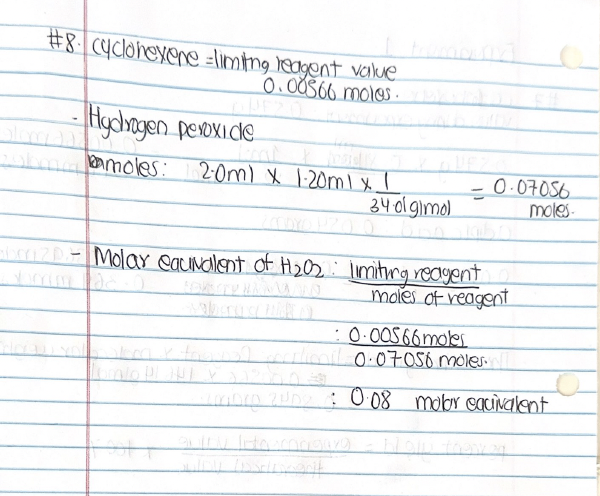 #8. cyclohexene = limiting reagent value
0.00566 moles.
- Hydrogen peroxide
moles: 2.0ml × 1.20ml × 1/34.01g/mol = 0.07056 moles.
- Molar equivalent of H2O2 : limiting reagent
moles of reagent
: 0.00566 moles
0.07056 moles.
: 0.08 molar equivalent